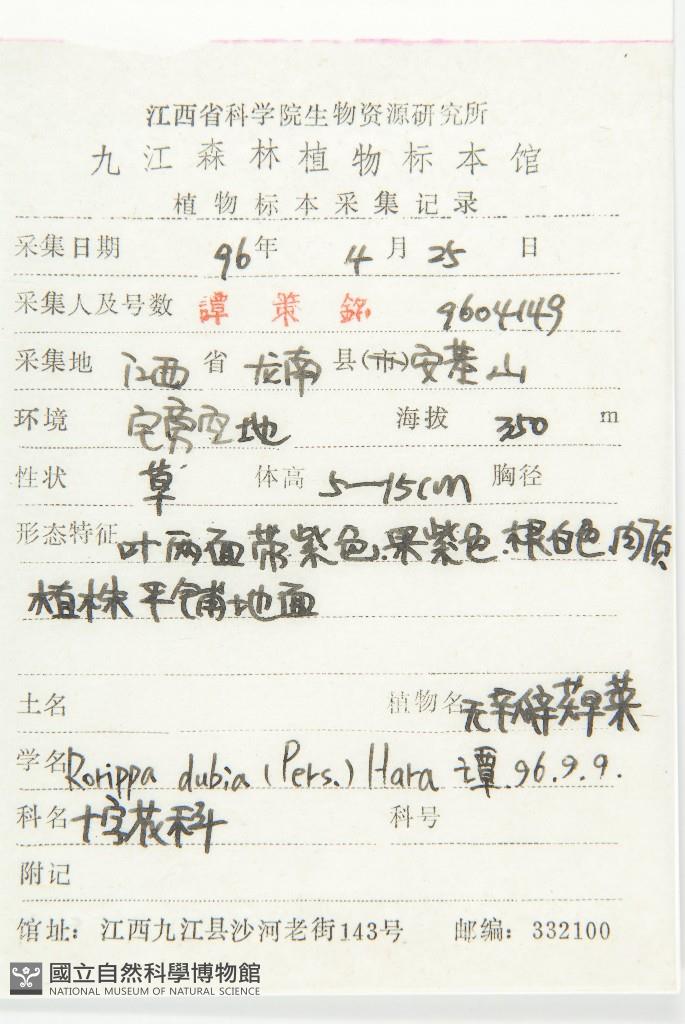 江西省科学院生物资源研究所
九江森林植物标本馆
植物标本采集记录
采集日期 96年 4月25日
采集人及号数 譚策銘 9604149
采集地 江西省 龙南县(市)安基山
环境 宅旁空地 海拔 350 m
性状 草 体高 5—15cm 胸径
形态特征 叶两面带紫色.果紫色.根白色肉质
植株平铺地面
土名 植物名 无辛瓣蔊菜
学名 Rorippa dubia (Pers.) Hara 谭.96.9.9.
科名 十字花科 科号
附记
馆址：江西九江县沙河老街143号 邮编：332100
國立自然科學博物館
NATIONAL MUSEUM OF NATURAL SCIENCE